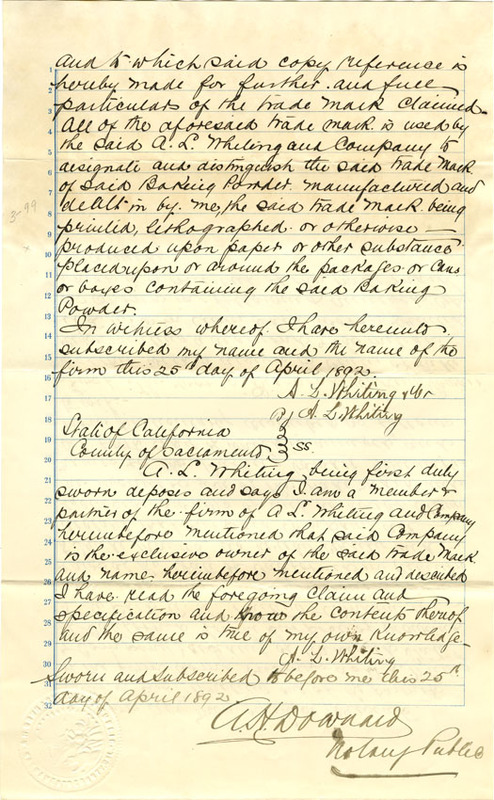 and to which said copy reference is
1 hereby made for further and full
2 particulars of the trade mark claimed.
3 All of the aforesaid trade mark is used by
4 the said A. L. Whiting and Company to
5 designate and distinguish the said trade mark
6 of said Baking Powder manufactured and
7 dealt in by me, the said trade mark being
8 printed, lithographed or otherwise —
9 produced upon paper or other substance
10 placed upon or around the packages or cans
11 or boxes containing the said Baking
12 Powder.
13 In witness whereof I have hereunto
14 subscribed my name and the name of the
15 firm this 25th day of April 1892.
16 A. L. Whiting & Co
17 By A. L. Whiting
18 State of California
19 County of Sacramento } ss.
20 A. L. Whiting being first duly
21 sworn deposes and says I am a member &
22 partner of the firm of A L. Whiting and Company
23 hereinbefore mentioned that said Company
24 is the exclusive owner of the said trade mark
25 and name hereinbefore mentioned and described
26 I have read the foregoing claim and
27 specification and know the contents thereof
28 and the same is true of my own knowledge
29 A. L. Whiting
30 Sworn and subscribed to before me this 25th
31 day of April 1892
32 A. H. Downard
Notary Public
3-99